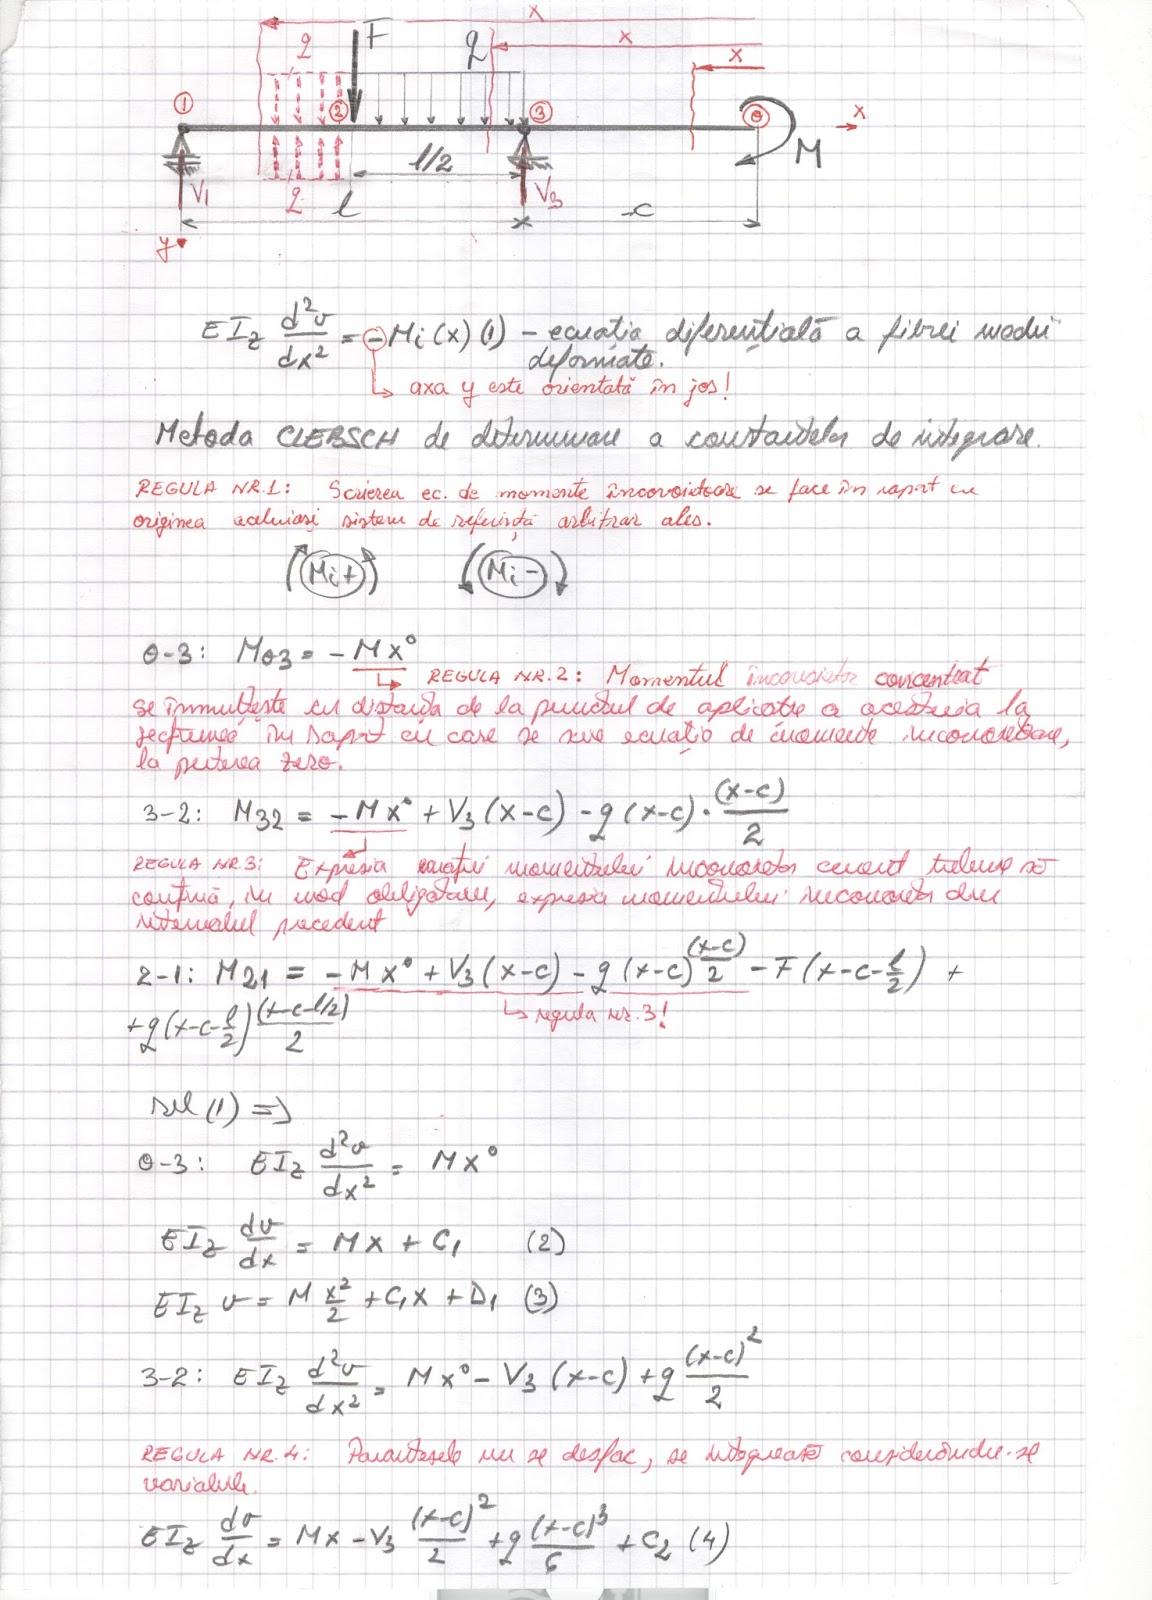 x
x
x
F
q
q
1
2
3
0
x
M
l/2
V1
V3
q
l
c
y
EIz d²v/dx² = -Mi(x) (1) – ecuația diferențială a fibrei medii
deformate.
↳ axa y este orientată în jos!
Metoda CLEBSCH de determinare a constantelor de integrare.
REGULA NR.1: Scrierea ec. de momente încovoietoare se face în raport cu
originea aceluiași sistem de referință arbitrar ales.
Mi+ Mi-
0-3: M03 = -Mx⁰
↳ REGULA NR.2: Momentul încovoietor concentrat
se înmulțește cu distanța de la punctul de aplicație a acestuia la
secțiunea în raport cu care se scrie ecuația de momente încovoietoare,
la puterea zero.
3-2: M32 = -Mx⁰ + V3(x-c) - q(x-c)·(x-c)/2
REGULA NR.3: Expresia ecuației momentului încovoietor curent trebuie să
conțină, în mod obligatoriu, expresia momentului încovoietor din
intervalul precedent
2-1: M21 = -Mx⁰ + V3(x-c) - q(x-c)(x-c)/2 - F(x-c-l/2) +
+q(x-c-l/2)(x-c-l/2)/2
↳ regula nr.3!
rel (1) =>
0-3: EIz d²v/dx² = Mx⁰
EIz dv/dx = Mx + C1 (2)
EIz v = M x²/2 + C1x + D1 (3)
3-2: EIz d²v/dx² = Mx⁰ - V3(x-c) + q (x-c)²/2
REGULA NR.4: Parantezele nu se desfac, se integrează considerându-se
variabile.
EIz dv/dx = Mx - V3 (x-c)²/2 + q (x-c)³/6 + C2 (4)